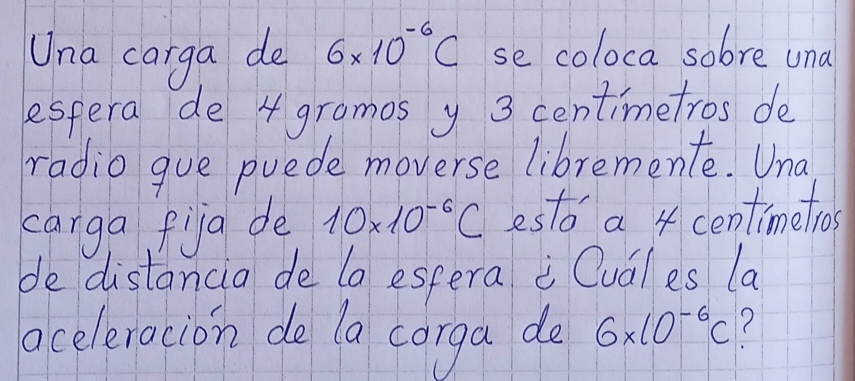 Una carga de 6x10⁻⁶C se coloca sobre una
esfera de 4 gramos y 3 centímetros de
radio que puede moverse libremente. Una
carga fija de 10x10⁻⁶C está a 4 centímetros
de distancia de la esfera ¿Cuál es la
aceleración de la carga de 6x10⁻⁶C?